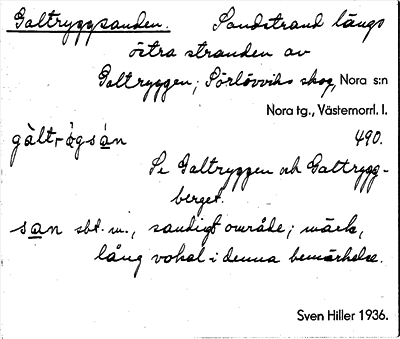 Galtryggsanden. Sandstrand längs
östra stranden av
Galtryggen; Sörlövviks skog, Nora s:n
Nora tg., Västernorrl. l.
490.
Se Galtryggen och Galtrygg-
berget.
san sbt. m., sandigt område; märk,
lång vokal i denna bemärkelse.
Sven Hiller 1936.